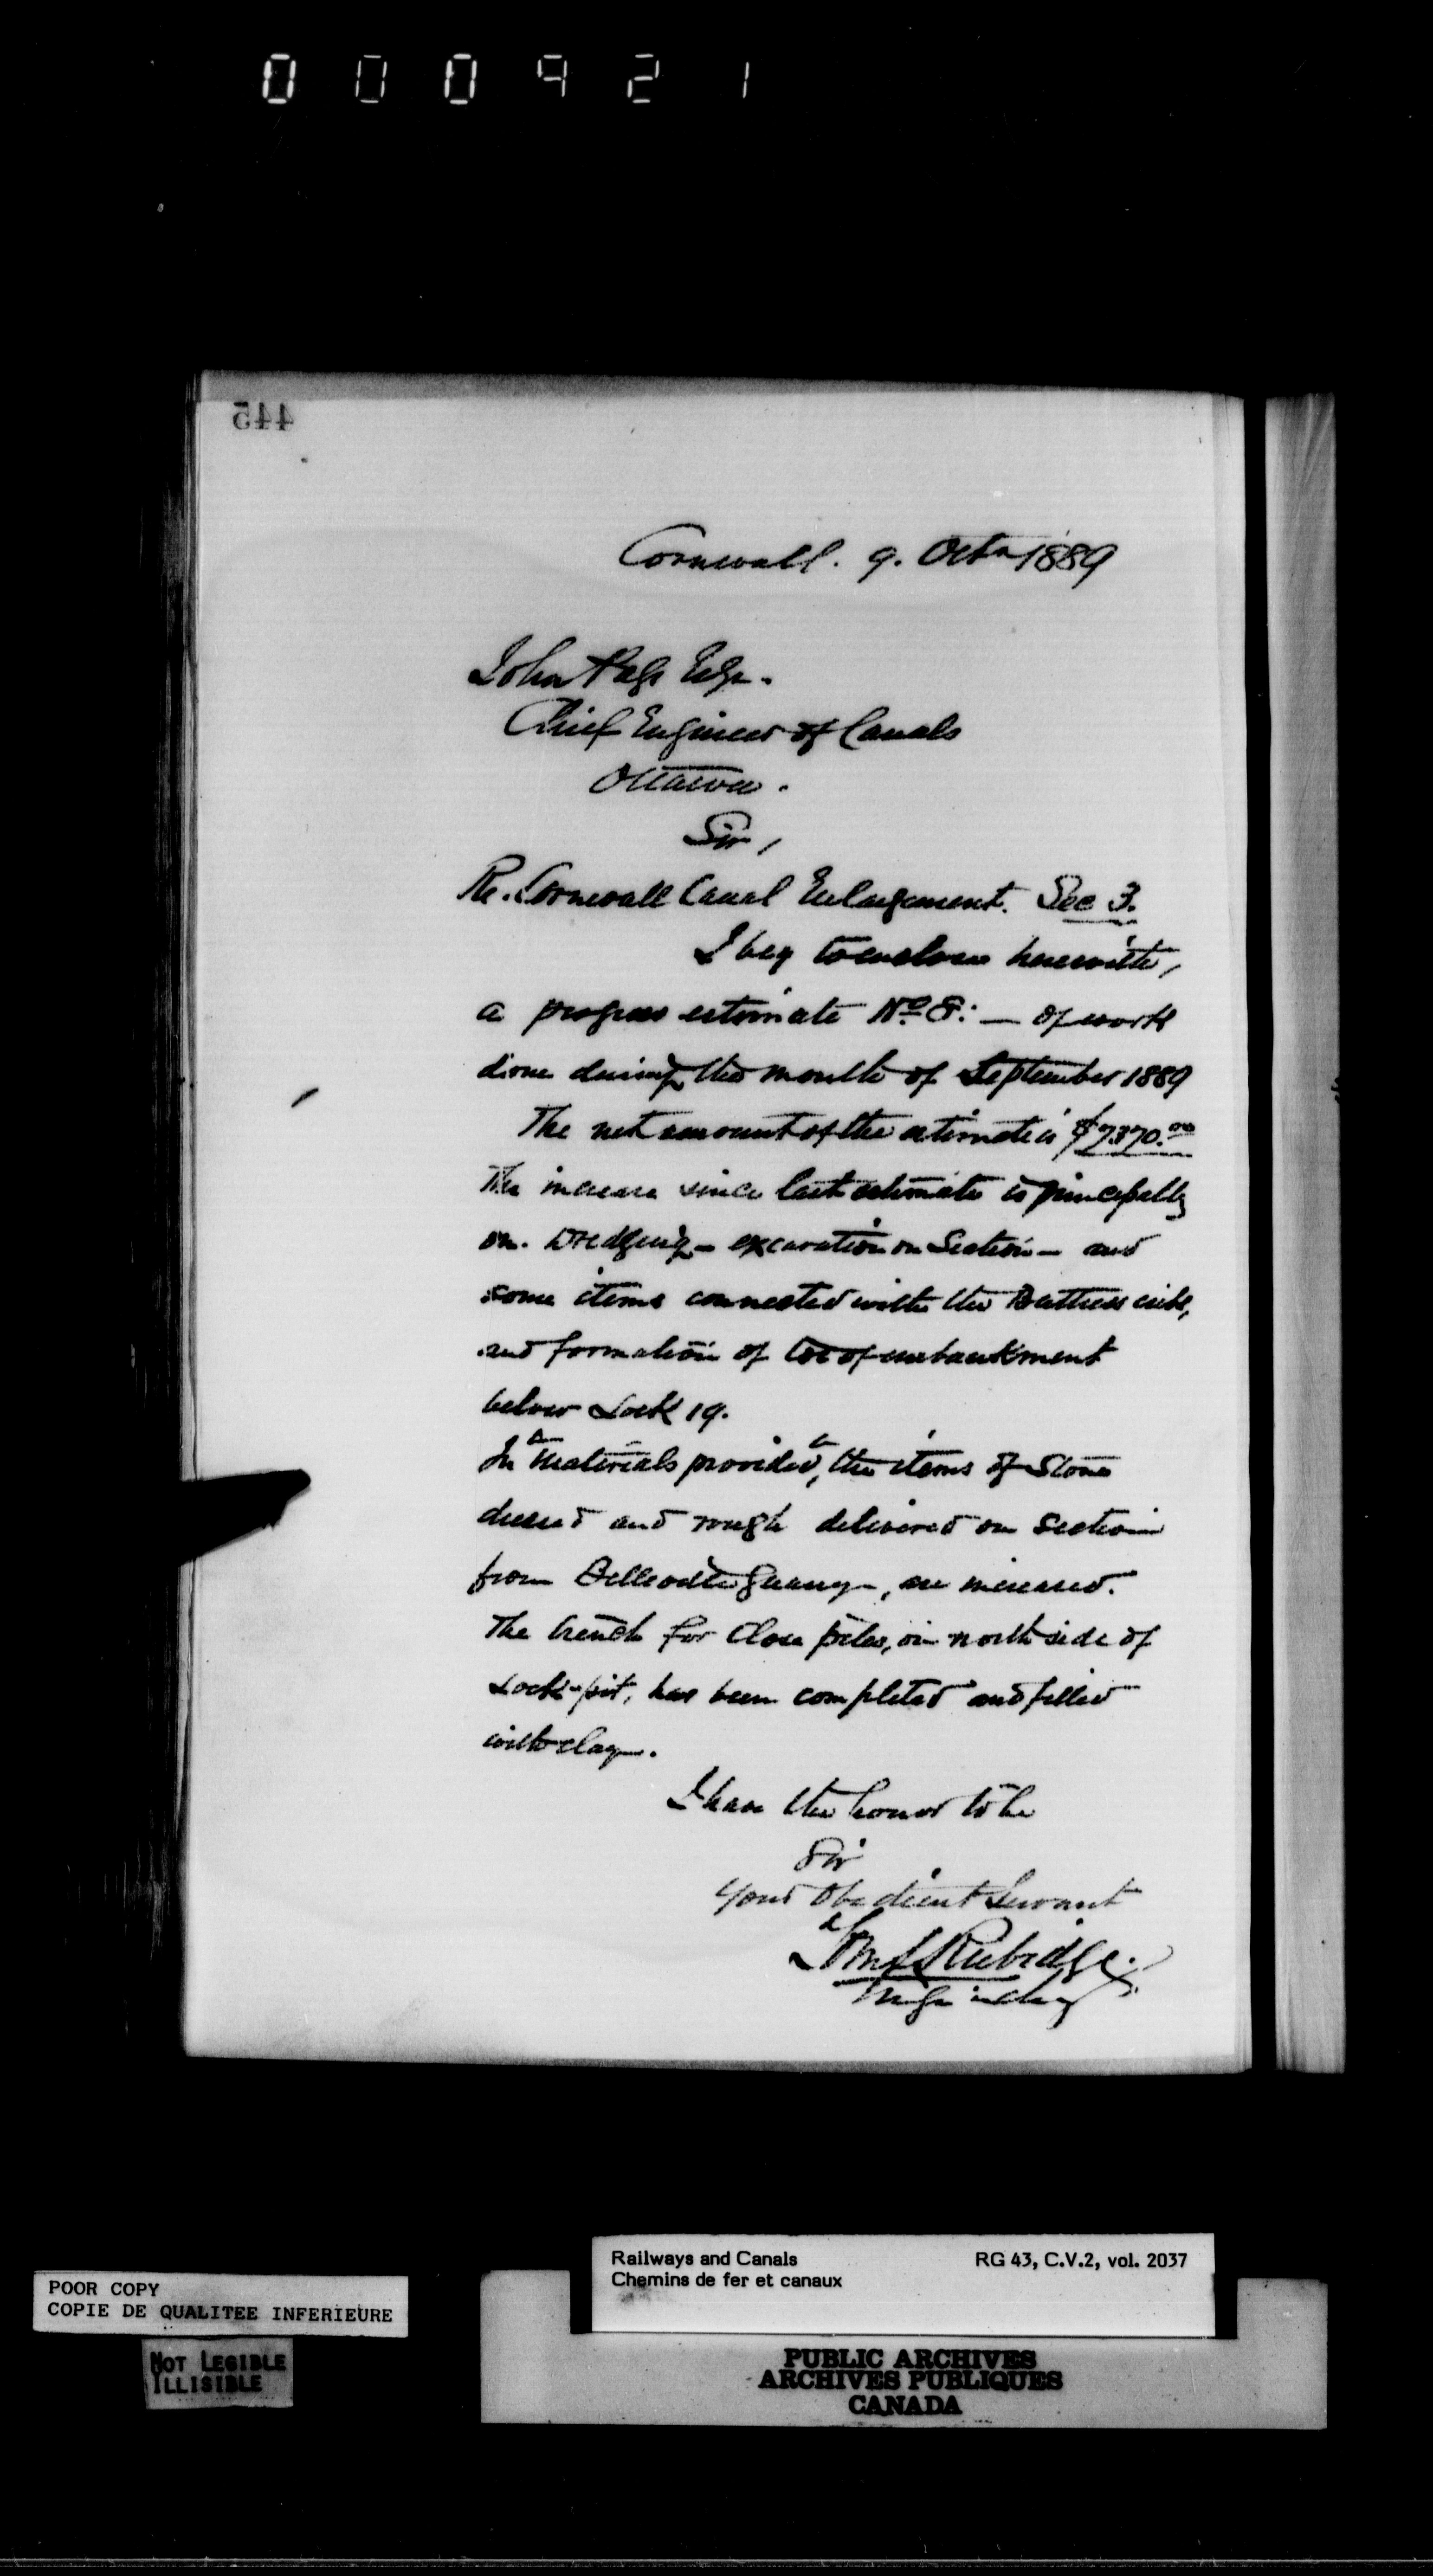 000921
445
Cornwall. 9. Octr 1889
John Page Esqr.
Chief Engineer of Canals
Ottawa.
Sir,
Re. Cornwall Canal Enlargement. Sec 3.
I beg to enclose herewith,
a progress estimate No. 8: — of work
done during the month of September 1889
The net amount of the estimate is $7370.00
The increase since last estimate is principally
on. Dredging - excavation on Section - and
some items connected with the Buttress cribs,
and formation of toe of embankment
below Lock 19.
In "Materials provided", the items of Stone
dressed and rough delivered on Section
from Belleville Quarry, are increased.
The trench for Close piles, on north side of
Lock-pit, has been completed and filled
with clay.
I have the honor to be
Sir
Your Obedient Servant
Tom S Rubidge.
Engr in Chg
POOR COPY
COPIE DE QUALITEE INFERIEURE
NOT LEGIBLE
ILLISIBLE
Railways and Canals RG 43, C.V.2, vol. 2037
Chemins de fer et canaux
PUBLIC ARCHIVES
ARCHIVES PUBLIQUES
CANADA